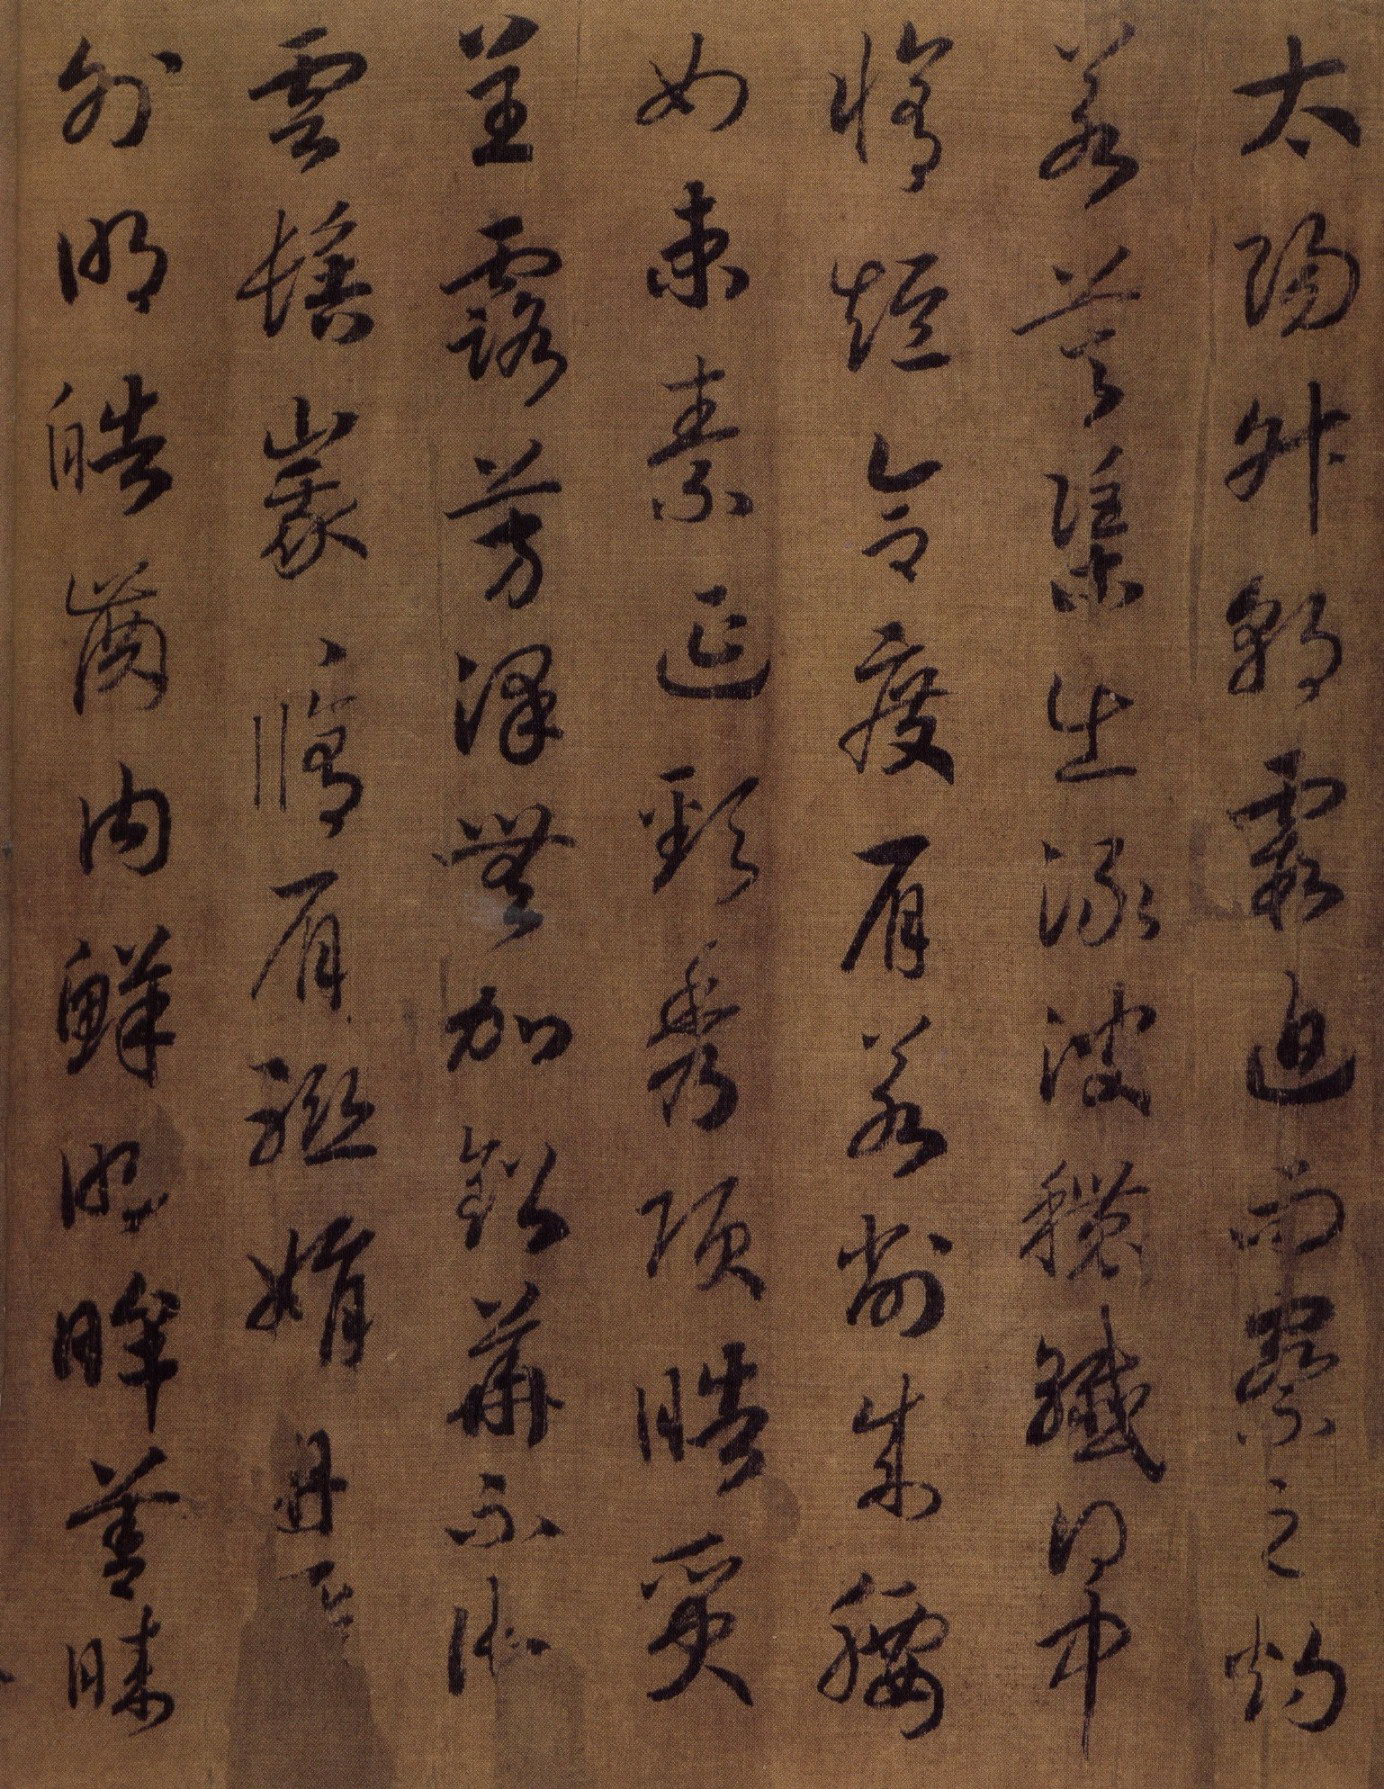 太陽升朝霞迫而察之灼
若芙蕖出淥波穠纖得中
脩短合度肩若削成腰
如束素延頸秀項皓質
呈露芳澤無加鉛華不御
雲髻峩々脩眉聯娟丹唇
外朗皓齒内鮮明眸善睞